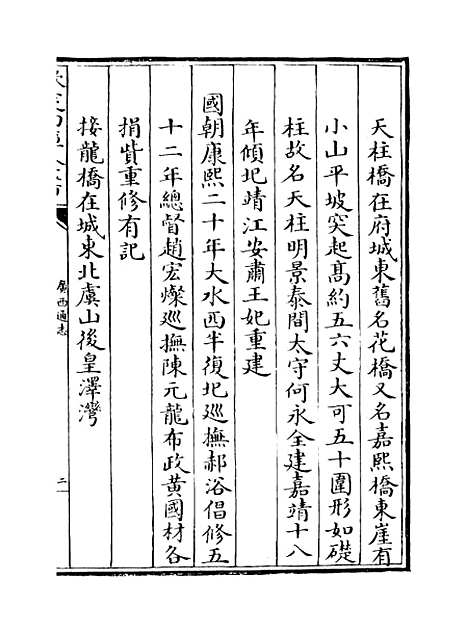 天柱橋在府城東舊名花橋又名嘉熙橋東崖有
小山平坡突起髙約五六丈大可五十圍形如礎
柱故名天柱明景泰間太守何永全建嘉靖十八
年傾圯靖江安肅王妃重建
國朝康熙二十年大水西半復圯巡撫郝浴倡修五
十二年總督趙宏燦巡撫陳元龍布政黄國材各
捐貲重修有記
接龍橋在城東北虞山後皇澤灣
廣西通志
二